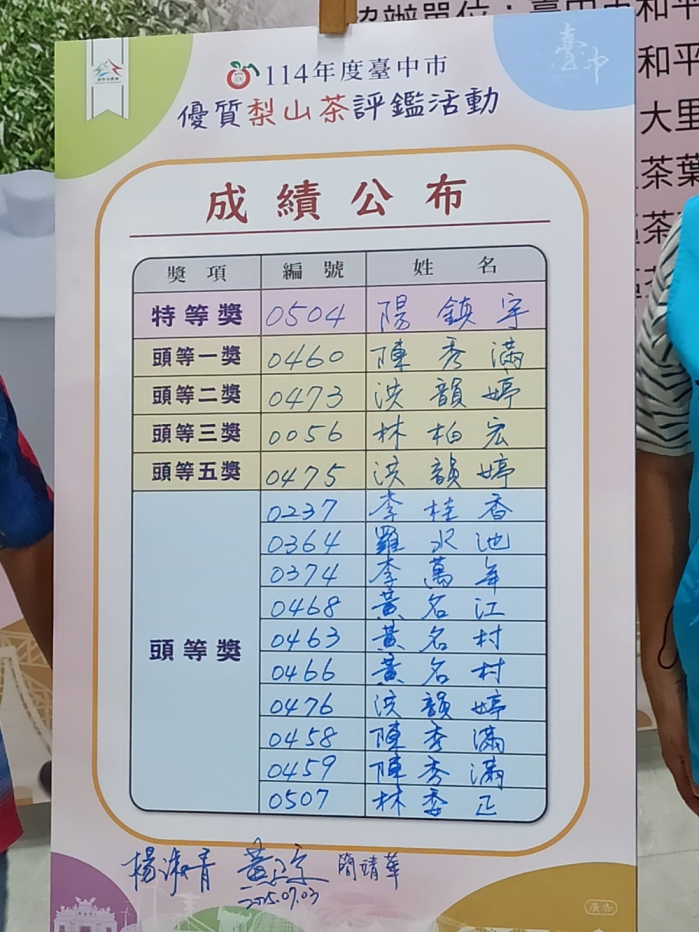 協辦單位：臺中市和平
和平
大里
茶葉
臺中
114年度臺中市
優質梨山茶評鑑活動
成績公布
獎項 編號 姓名
特等獎 0504 陽鎮宇
頭等一獎 0460 陳秀滿
頭等二獎 0473 洪韻婷
頭等三獎 0056 林柏宏
頭等五獎 0475 洪韻婷
頭等獎
0237 李桂香
0364 羅水池
0374 李萬年
0468 黃名江
0463 黃名村
0466 黃名村
0476 洪韻婷
0458 陳秀滿
0459 陳秀滿
0507 林委正
楊淑青 簡靖華
2025.07.03
廣告